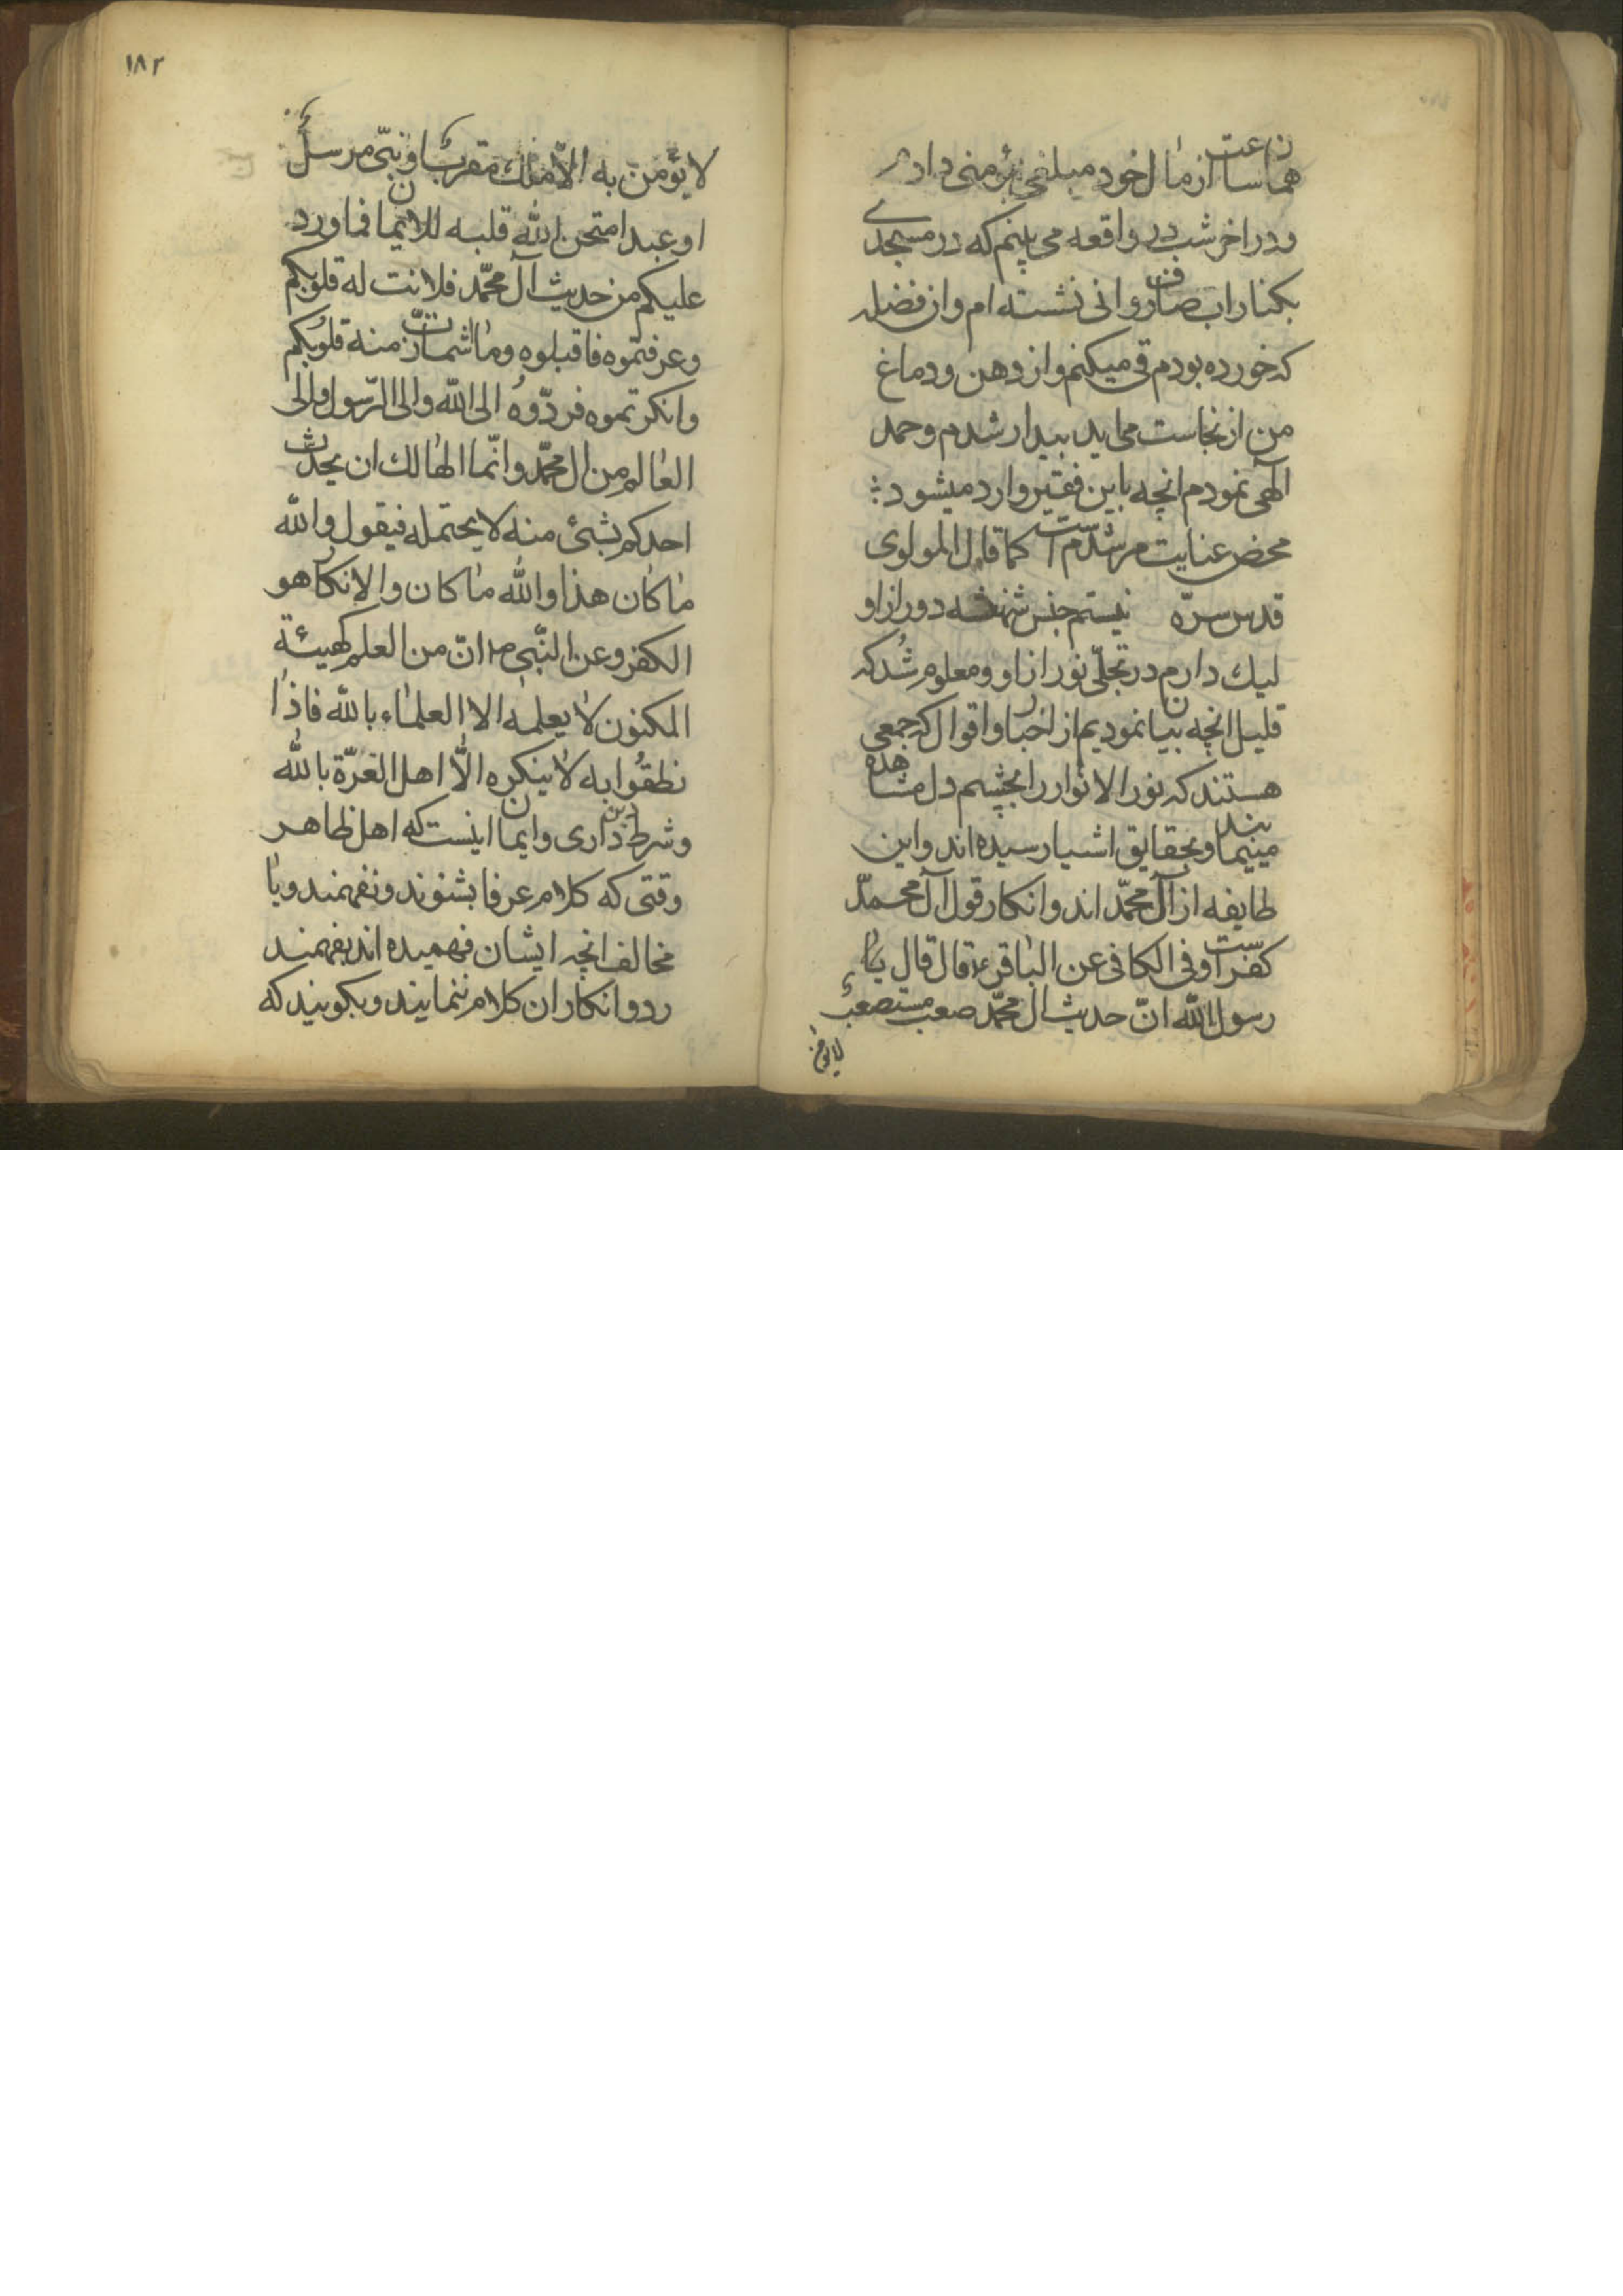 همان ساعت از مال خود مبلغی بمؤمنی دادم
و در اخر شب در واقعه می بینم که در مسجدی
بکنار اب صاف روانی نشسته ام و ان فضله
که خورده بودم قی میکنم و از دهن و دماغ
من از نجاست می اید بیدار شدم و حمد
الهی نمودم انچه باین فقیر وارد میشود
محض عنایت مرشدم است کما قال المولوی
قدس سرّه نیستم جنس شهنشه دور از او
لیك دارم در تجلّی نور از او و معلوم شُد که
قلیل انچه بیان نمودیم از اخبار و اقوال که جمعی
هستند که نور الانوار را بچشم دل مشاهده
مینمایند و بحقایق اشیا رسیده اند و این
طایفه از آل محمّد اند و انکار قول آل محمّد
کفر است و فی الکافی عن الباقر ع قال قال یا
رسول اللّه انّ حدیث ال محمّد صعب مستصعب
لایؤمن
١٨٢
لا یؤمن به الّا ملك مقرب او نبیّ مرسل
او عبد امتحن اللّه قلبه للایمان فما ورد
علیکم من حدیث آل محمّد فلانت له قلوبکم
و عرفتموه فاقبلوه و ما اشمازّت منه قلوُبکم
و انکرتموه فردّوهُ الی اللّه و الی الرّسول و الی
العالم من ال محمّد و انّما الهالك ان یحدّث
احدکم بشئ منه لا یحتمله فیقول و اللّه
ما کان هذا و اللّه ما کان و الانکار هو
الکفر و عن النّبی ص انّ من العلم کهیئة
المکنون لا یعلمه الا العلماء باللّه فاذا
نطقُوا به لا ینکره الّا اهل الغرّة باللّه
و شرط دین داری و ایمان اینست که اهل ظاهر
وقتی که کلام عرفا بشنوند و نفهمند و یا
مخالف انچه ایشان فهمیده اند بفهمند
رد و انکار ان کلام ننمایند و بکویند که